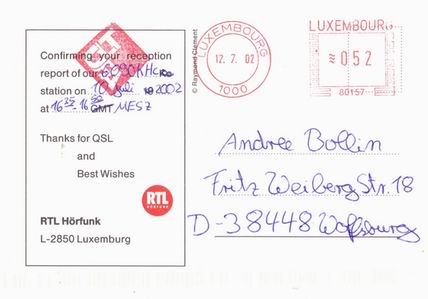 Confirming your reception
report of our 6090KHz
station on 10 Juli 2002
at 16 GMT MESZ
Thanks for QSL
and
Best Wishes
RTL
HÖRFUNK
RTL Hörfunk
L-2850 Luxemburg
© Raymond Clement
LUXEMBOURG
12. 7. 02
1000
LUXEMBOURG
052
80157
Andree Bollin
Fritz Weiberg Str. 18
D-38448 Wolfsburg